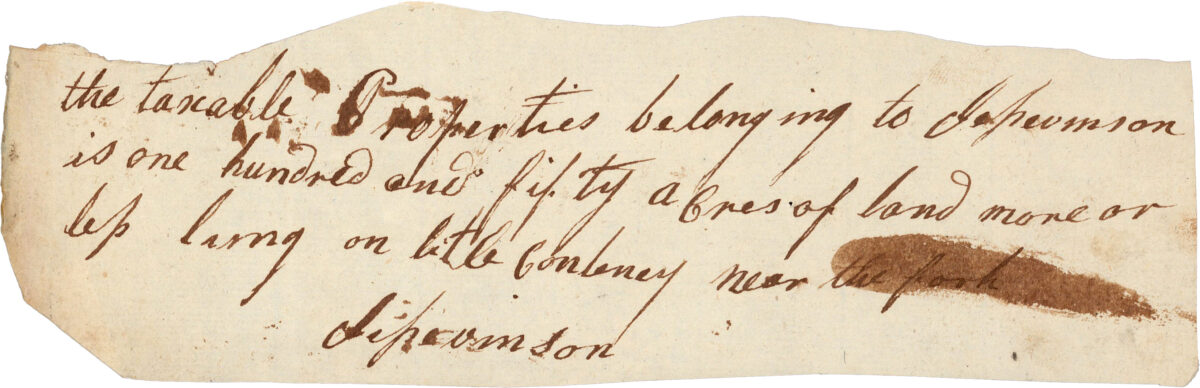 the taxable Properties belonging to Jessevinson
is one hundred and fifty acres of land more or
less on litle Conteney near the fork
Jessevinson